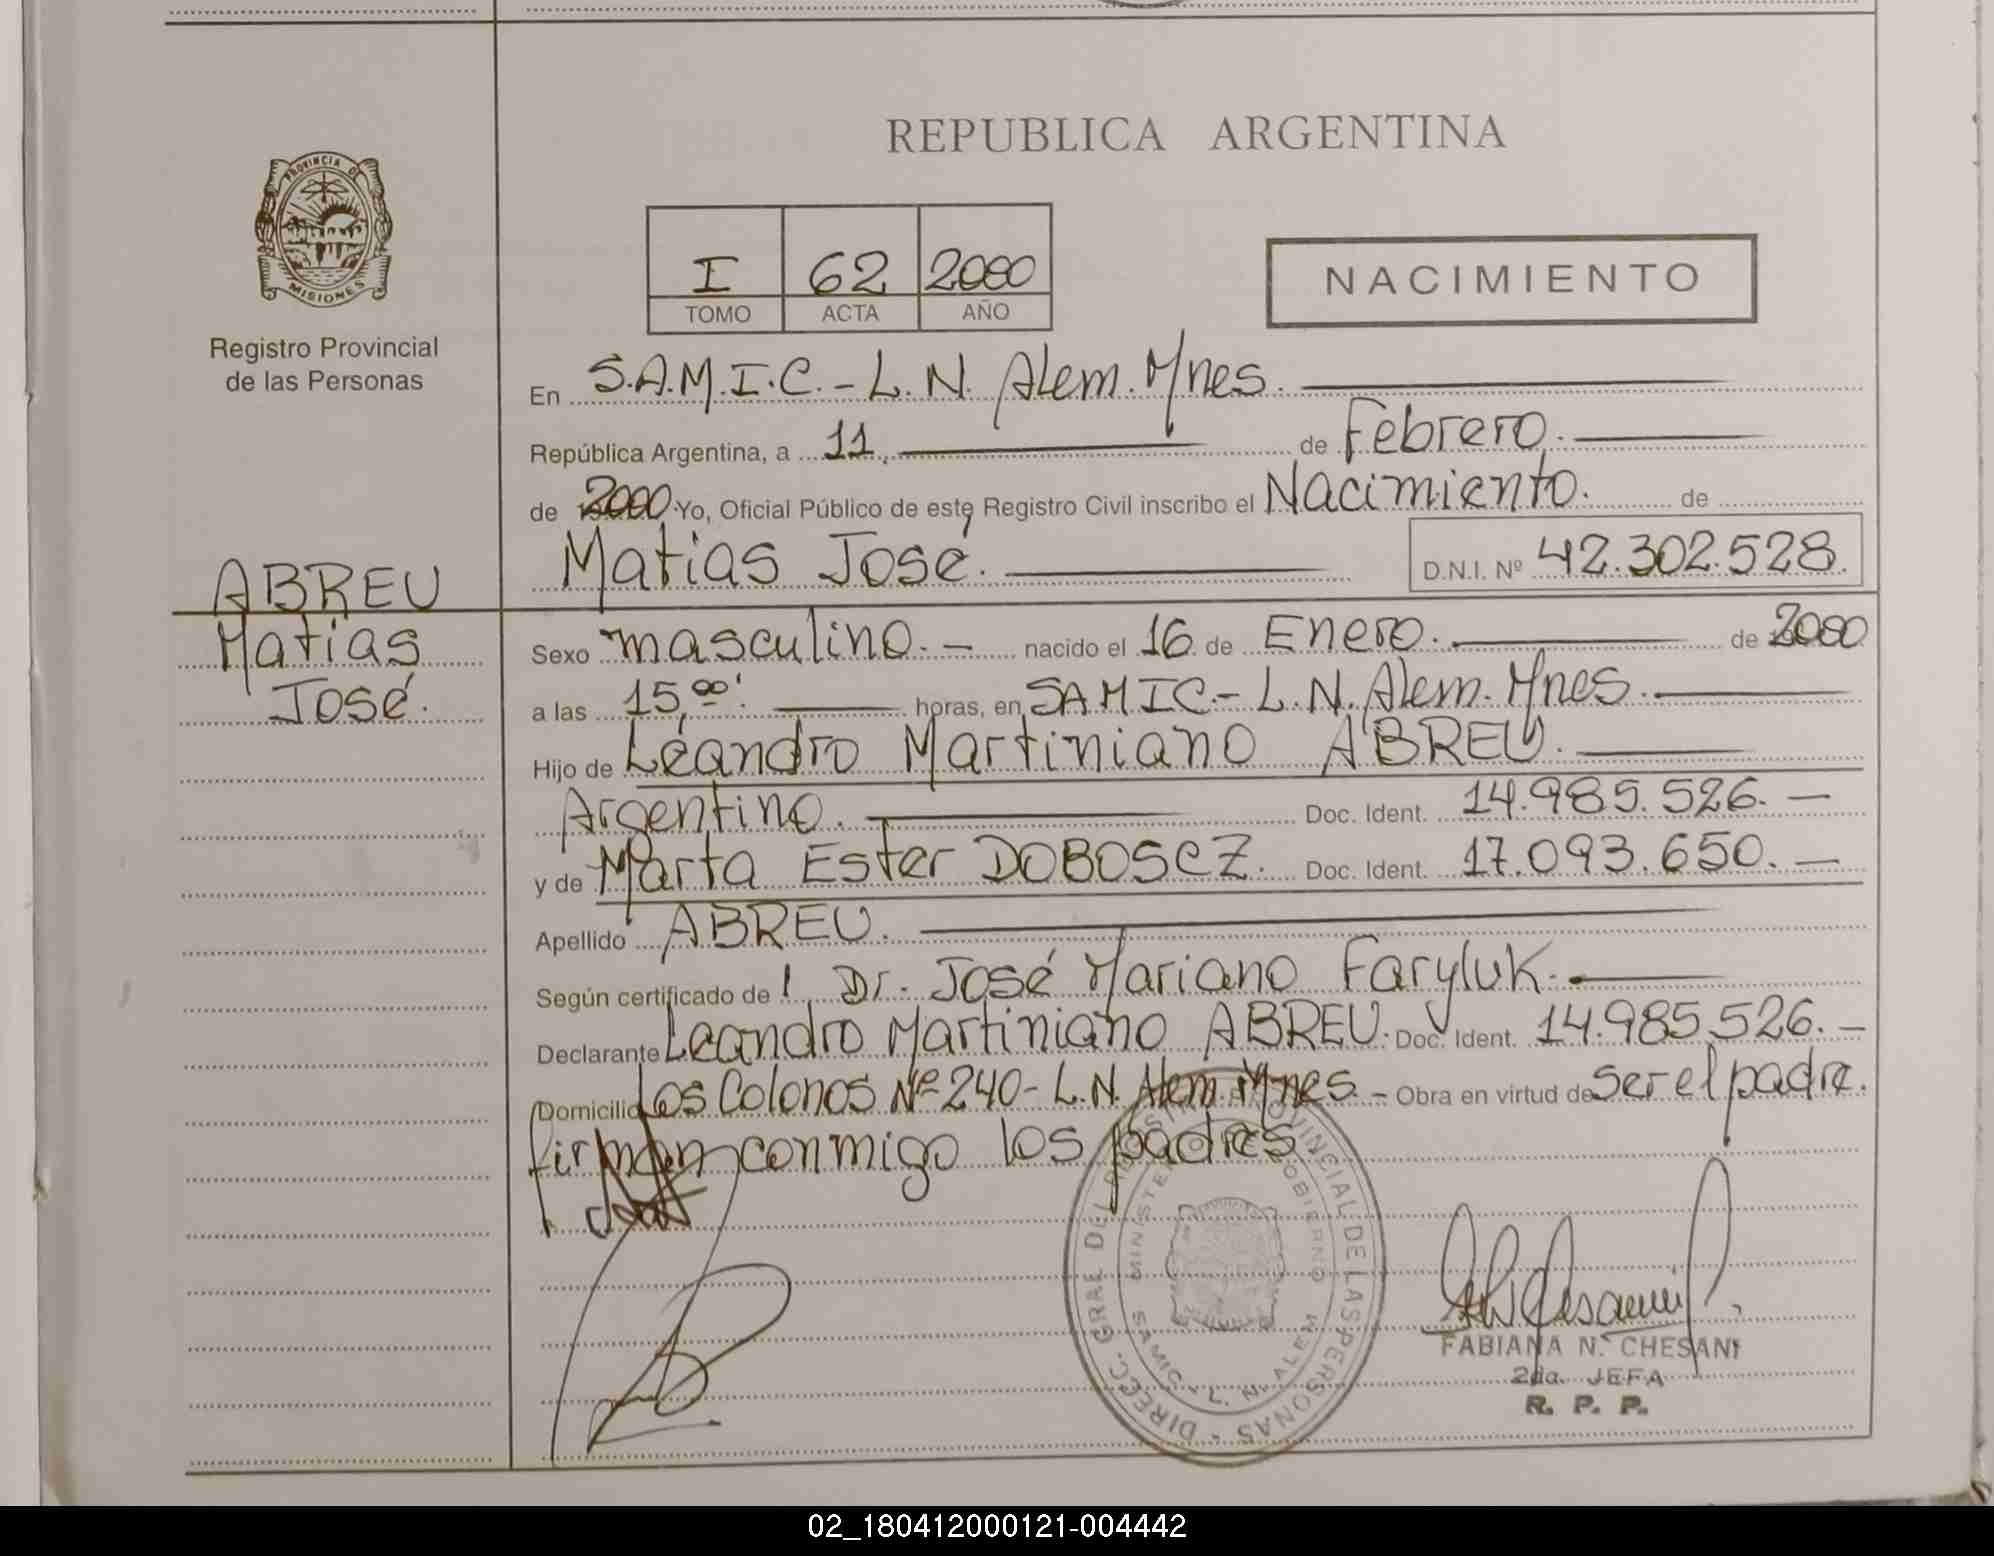 REPUBLICA ARGENTINA
PROVINCIA DE
MISIONES
Registro Provincial
de las Personas
I 62 2000
TOMO ACTA AÑO
NACIMIENTO
En S.A.M.I.C.-L.N. Alem. Mnes.
República Argentina, a 11 de Febrero.
de 2000 Yo, Oficial Público de este Registro Civil inscribo el Nacimiento. de
Matias José. D.N.I. Nº 42.302.528.
ABREU
Matias
José.
Sexo masculino. - nacido el 16 de Enero. de 2000
a las 15,00'. horas, en SAMIC.- L.N. Alem. Mnes.
Hijo de Leandro Martiniano ABREU.
Argentino. Doc. Ident. 14.985.526. -
y de Marta Ester DOBOSCZ. Doc. Ident. 17.093.650. -
Apellido ABREU.
Según certificado de l Dr. José Mariano Faryluk.
Declarante Leandro Martiniano ABREU. Doc. Ident. 14.985.526. -
Domicilio Los Colonos Nº 240- L.N. Alem. Mnes. - Obra en virtud de ser el padre.
firman conmigo los padres
DIREC. GRAL DEL REGISTRO PROVINCIAL DE LAS PERSONAS
MINISTERIO GOBIERNO
SAMIC - L. N. ALEM
FABIANA N. CHESANI
2da. JEFA
R. P. P.
02_180412000121-004442